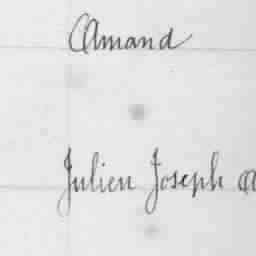 Amand
Julien Joseph